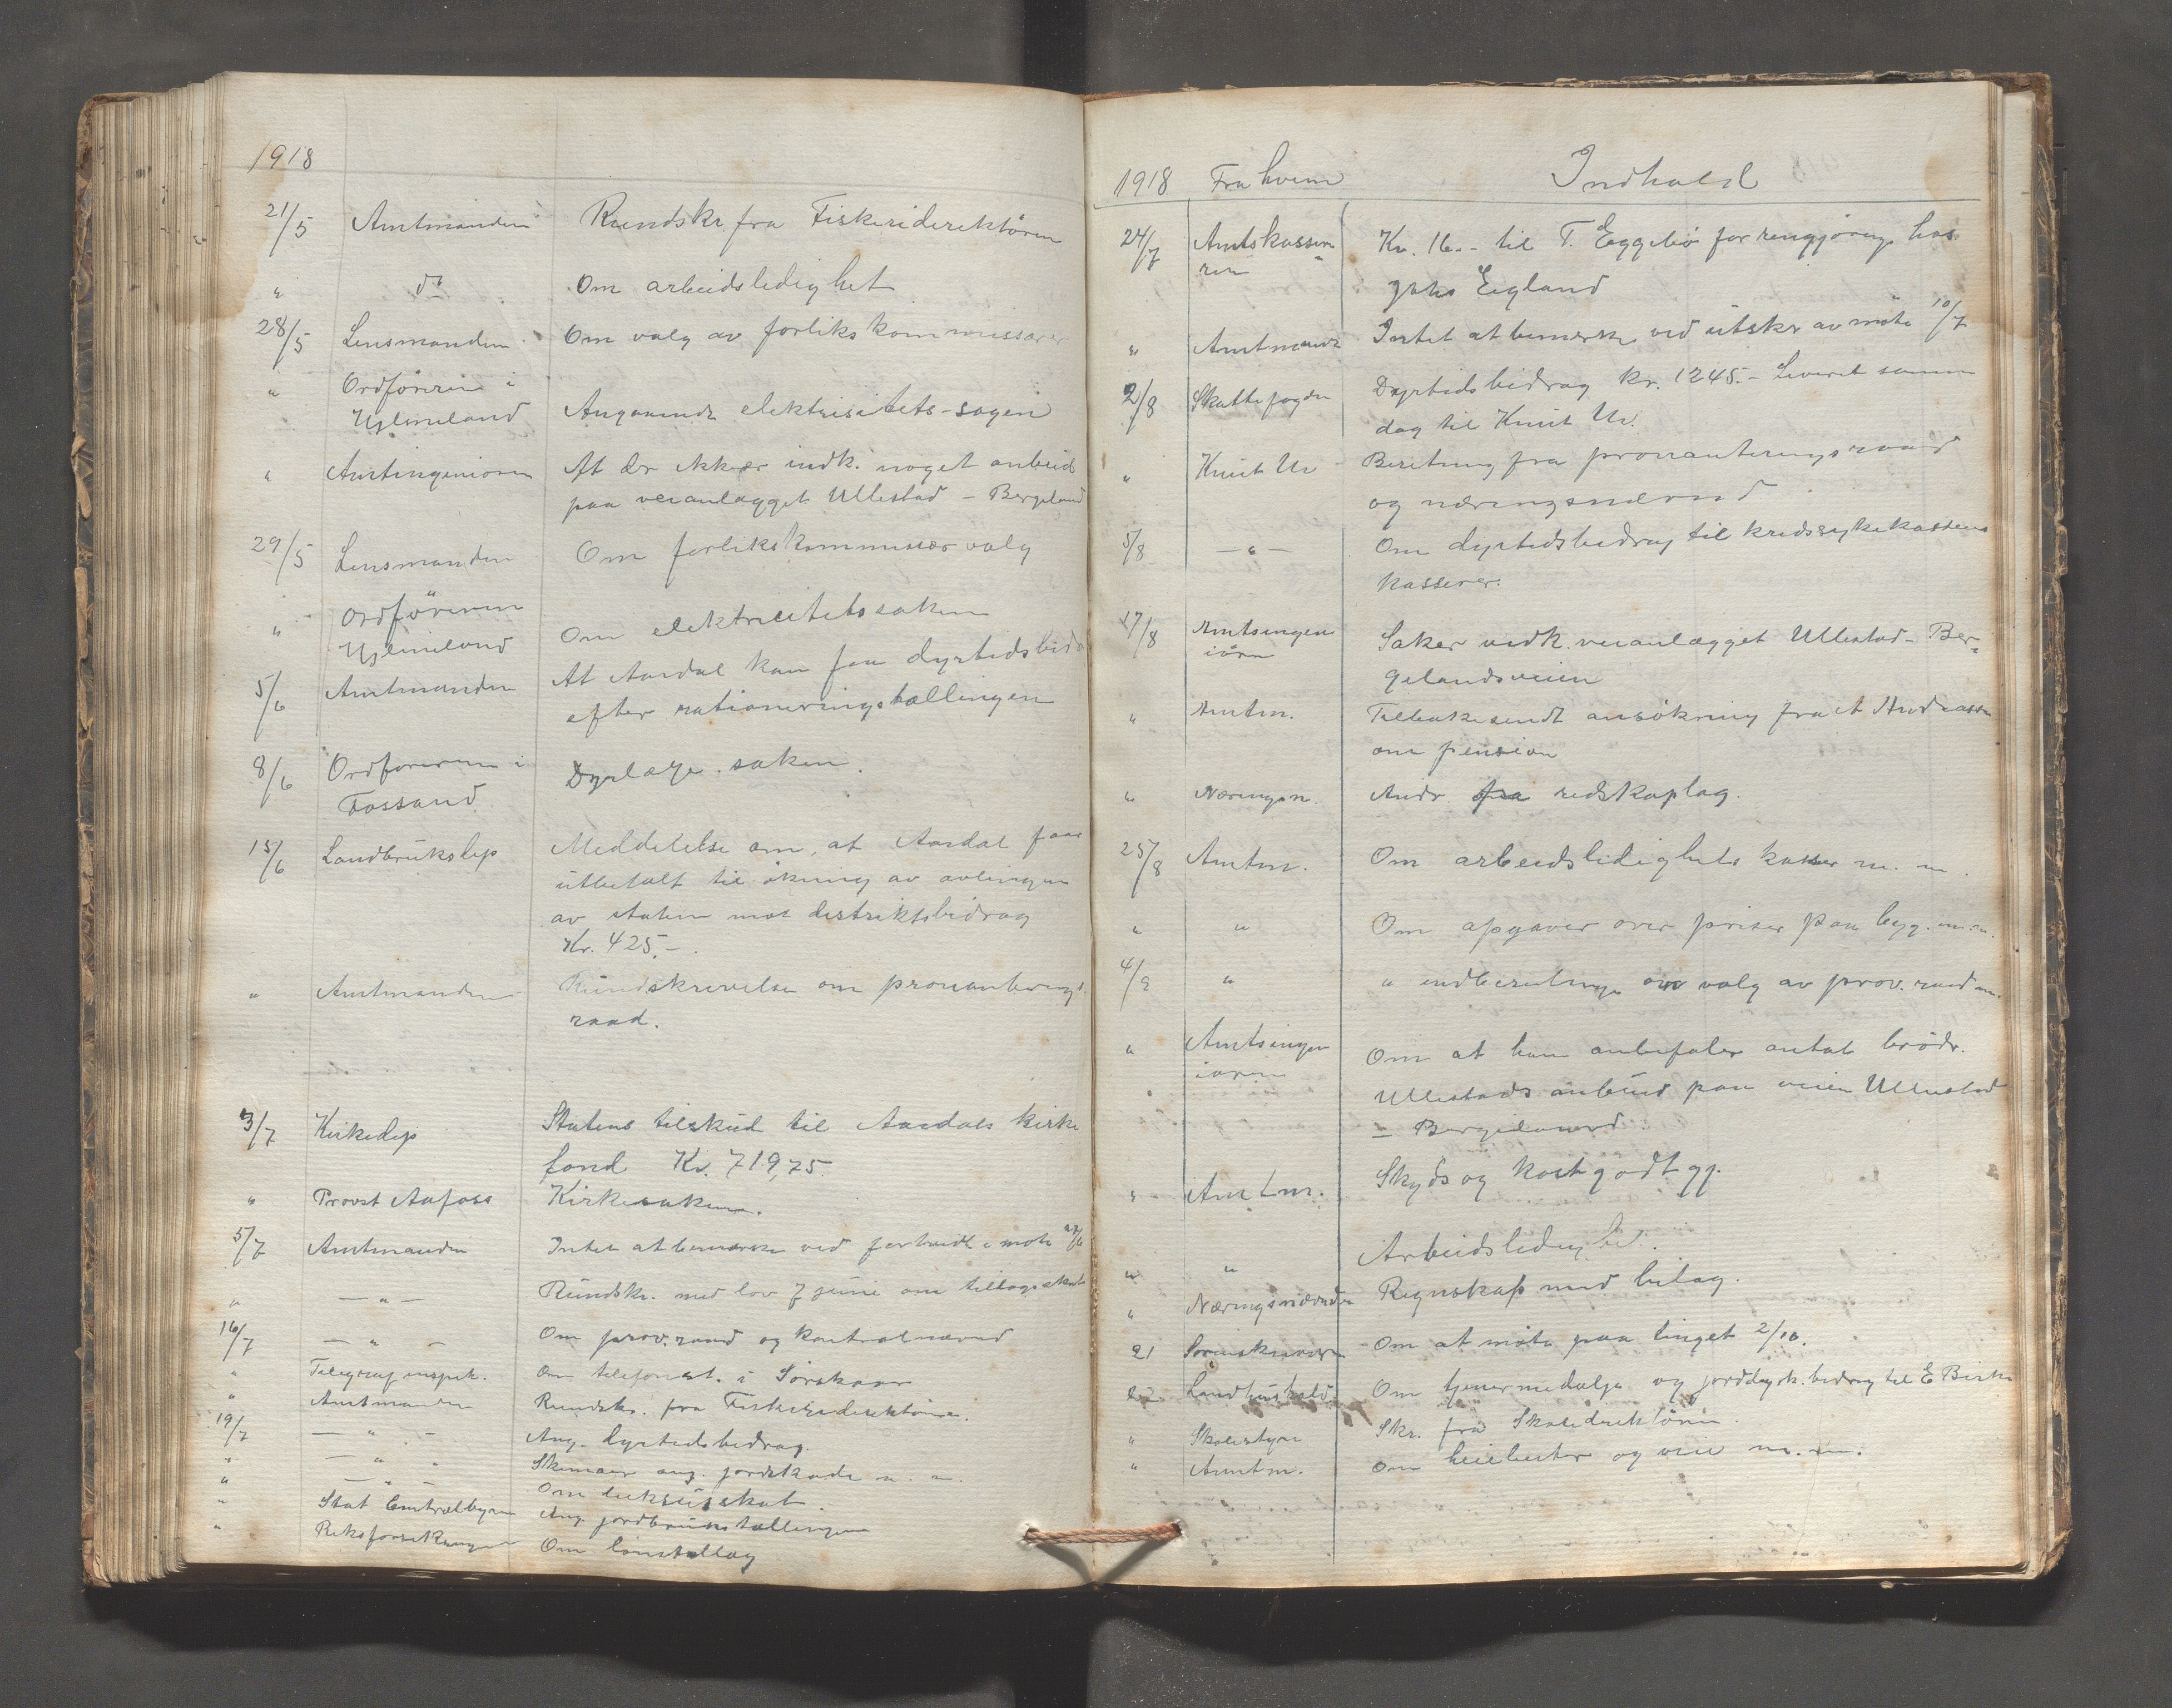 1918
21/5 Amtmanden Rundskr. fra Fiskeridirektören
" do Om arbeidsledighet
28/5 Lensmanden Om valg av forlikskommissærer
" Ordföreren i
Hjelmeland Angaaende elektrisitets-sagen
" Amtingeniören At der ikke er indk. noget anbud
paa veianlægget Ullestad - Bergeland
29/5 Lensmanden Om forlikskommissær valg
" Ordföreren
Hjelmeland Om elektricitetssaken
5/6 Amtmanden At Aardal kan faa dyrtidsbidr
efter rationeringstællingen
8/6 Ordföreren i Dyrlæge-saken.
Fossand
15/6 Landbruksdep Meddelelse om, at Aardal faar
utbetalt til økning av avlingen
av staten mot distriktsbidrag
Kr. 425,-
" Amtmanden Rundskrivelse om provianterings-
raad.
3/7 Kirkedep Statens tilskud til Aardals kirke
fond Kr. 719,75
" Provst Aafoss Kirkesaken.
5/7 Amtmanden Intet at bemerke ved forhandl. i møte 27/6
" — " — Rundskr. med lov 7 juni om tillægsskat
16/7 — " — Om prov.raad og kontrolnævnd
" Telegraf inspek. Om telefonst. i Sörskaar
" Amtmanden Rundskr. fra Fiskeridirektören.
19/7 — " — Ang. dyrtidsbidrag.
" — " — Skemaer ang. jordskade m. m.
" — " — Om luksusskat.
" Stat Centralbyraa Ang. jordbrukstællingen
" Riksforsikringen Om lönstillæg
1918 Fra hvem Indhold
24/7 Amtskasse- Kr. 16.- til T. Eggebö for rengjöring hos
reren Johs Eigland
" Amtmand Intet at bemerke ved utskr av möte 10/7
2/8 Skattefogden Dyrtidsbidrag kr. 1245.- Leveret samme
dag til Knut Ur.
" Knut Ur Beretning fra provianteringsraad
og næringsnævnd
5/8 — " — Om dyrtidsbidrag til kredssykekassens
kasserer.
17/8 Amtsingen- Saker vedk. veianlægget Ullestad - Ber-
iören gelandsveien
" Amtm. Tilbakesendt ansökning fra A Andreassen
om pension
" Næringsn. Andr. fra redskaplag.
25/8 Amtm. Om arbeidsledighets kasser m. m.
" " Om opgaver over priser paa byg. m.m.
4/9 " " indberetning om valg av prov. raad m.m.
" Amtsingen Om at han anbefaler antat brödr.
iören Ullestads anbud paa veien Ullestad
- Bergeland
" Amtm. Skyds og kostgodtgj.
" " Arbeidsledighet.
" Næringsnævnden Regnskap med bilag.
21 Sorenskriveren Om at möte paa tinget 2/10.
22 Landhushold. Om tjenermedalje og jorddyrk. bidrag til E Birke
" Skolestyre Skr. fra Skoledirektören.
" Amtm. Om m.m.